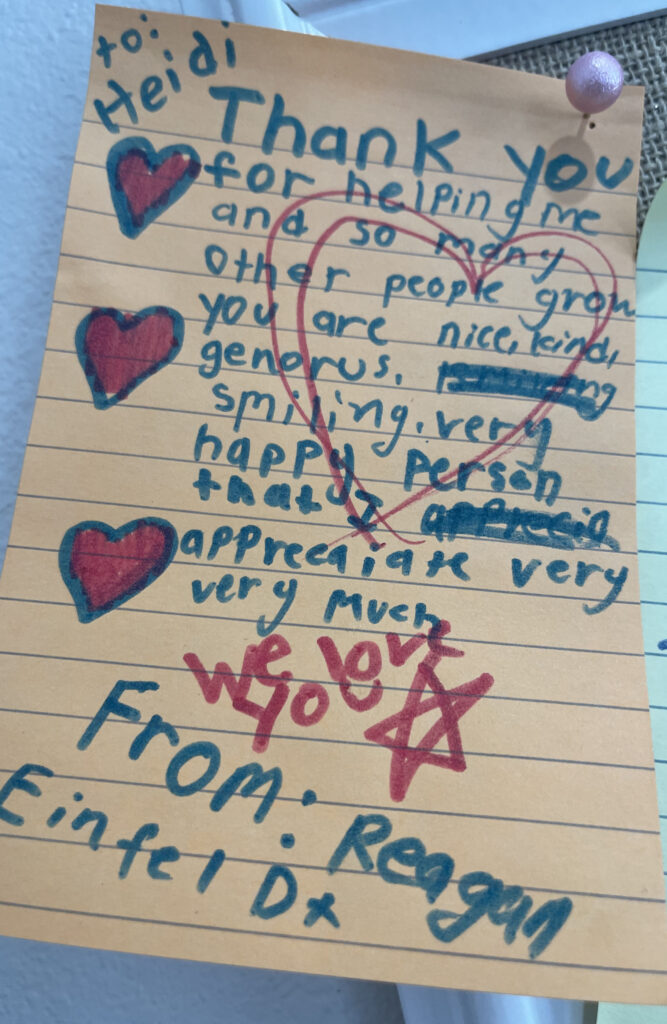 to:
Heidi
Thank you
for helping me
and so many
other people grow
you are nice, kind,
genorus,
smiling, very
happy person
that I
apprecaiate very
very much
We love
you
From: Reagan
Einfel Dx